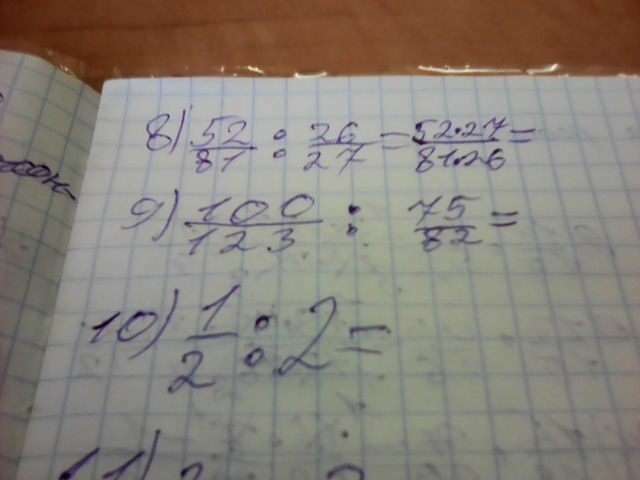 8) 52/81 : 26/27 = 52·27/81·26 =
9) 100/123 : 75/82 =
10) 1/2 : 2 =
11)